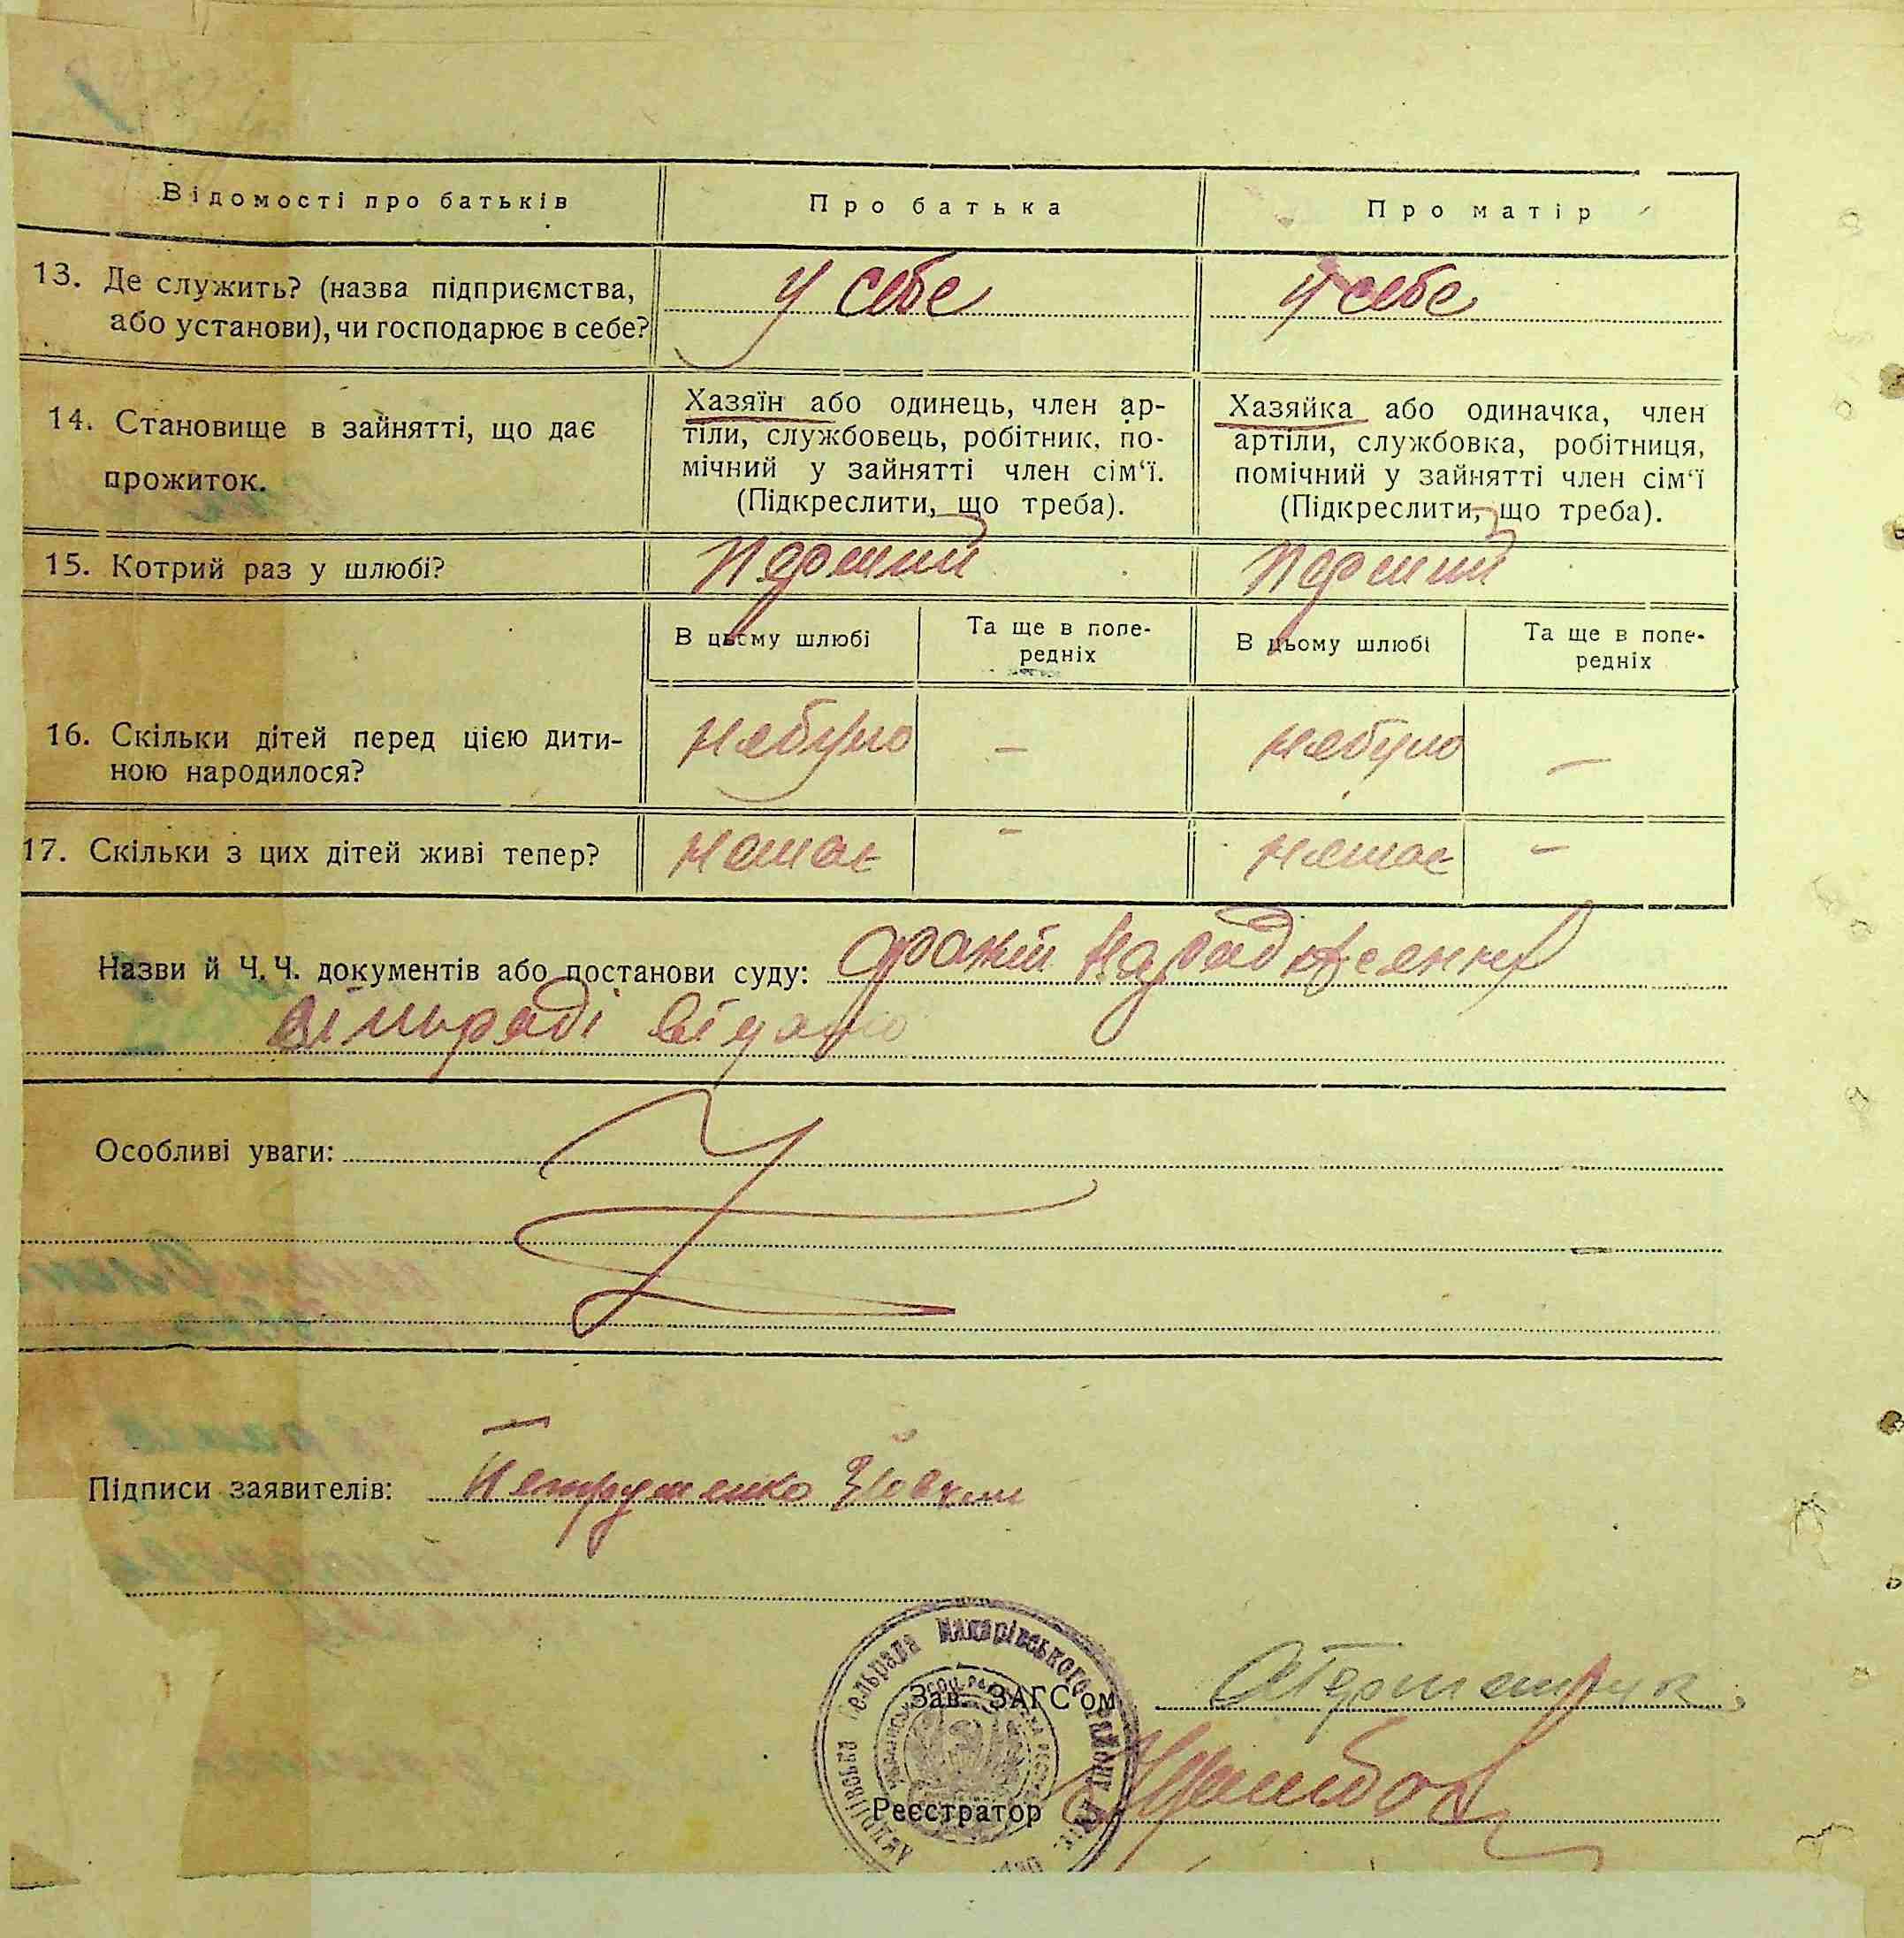 Відомості про батьків
Про батька
Про матір
13. Де служить? (назва підприємства,
або установи), чи господарює в себе?
у себе
у себе
14. Становище в зайнятті, що дає
прожиток.
Хазяїн або одинець, член ар-
тіли, службовець, робітник, по-
мічний у зайнятті член сім'ї.
(Підкреслити, що треба).
Хазяйка або одиначка, член
артіли, службовка, робітниця,
помічний у зайнятті член сім'ї
(Підкреслити, що треба).
15. Котрий раз у шлюбі?
Перший
Перший
В цьому шлюбі
Та ще в попе-
редніх
В цьому шлюбі
Та ще в попе-
редніх
16. Скільки дітей перед цією дити-
ною народилося?
небуло
–
небуло
–
17. Скільки з цих дітей живі тепер?
немає
–
немає
–
Назви й Ч.Ч. документів або постанови суду:
Особливі уваги:
Підписи заявителів: Петрушенко
сельрада Макарівського району
Зав. ЗАГС'ом
Реєстратор